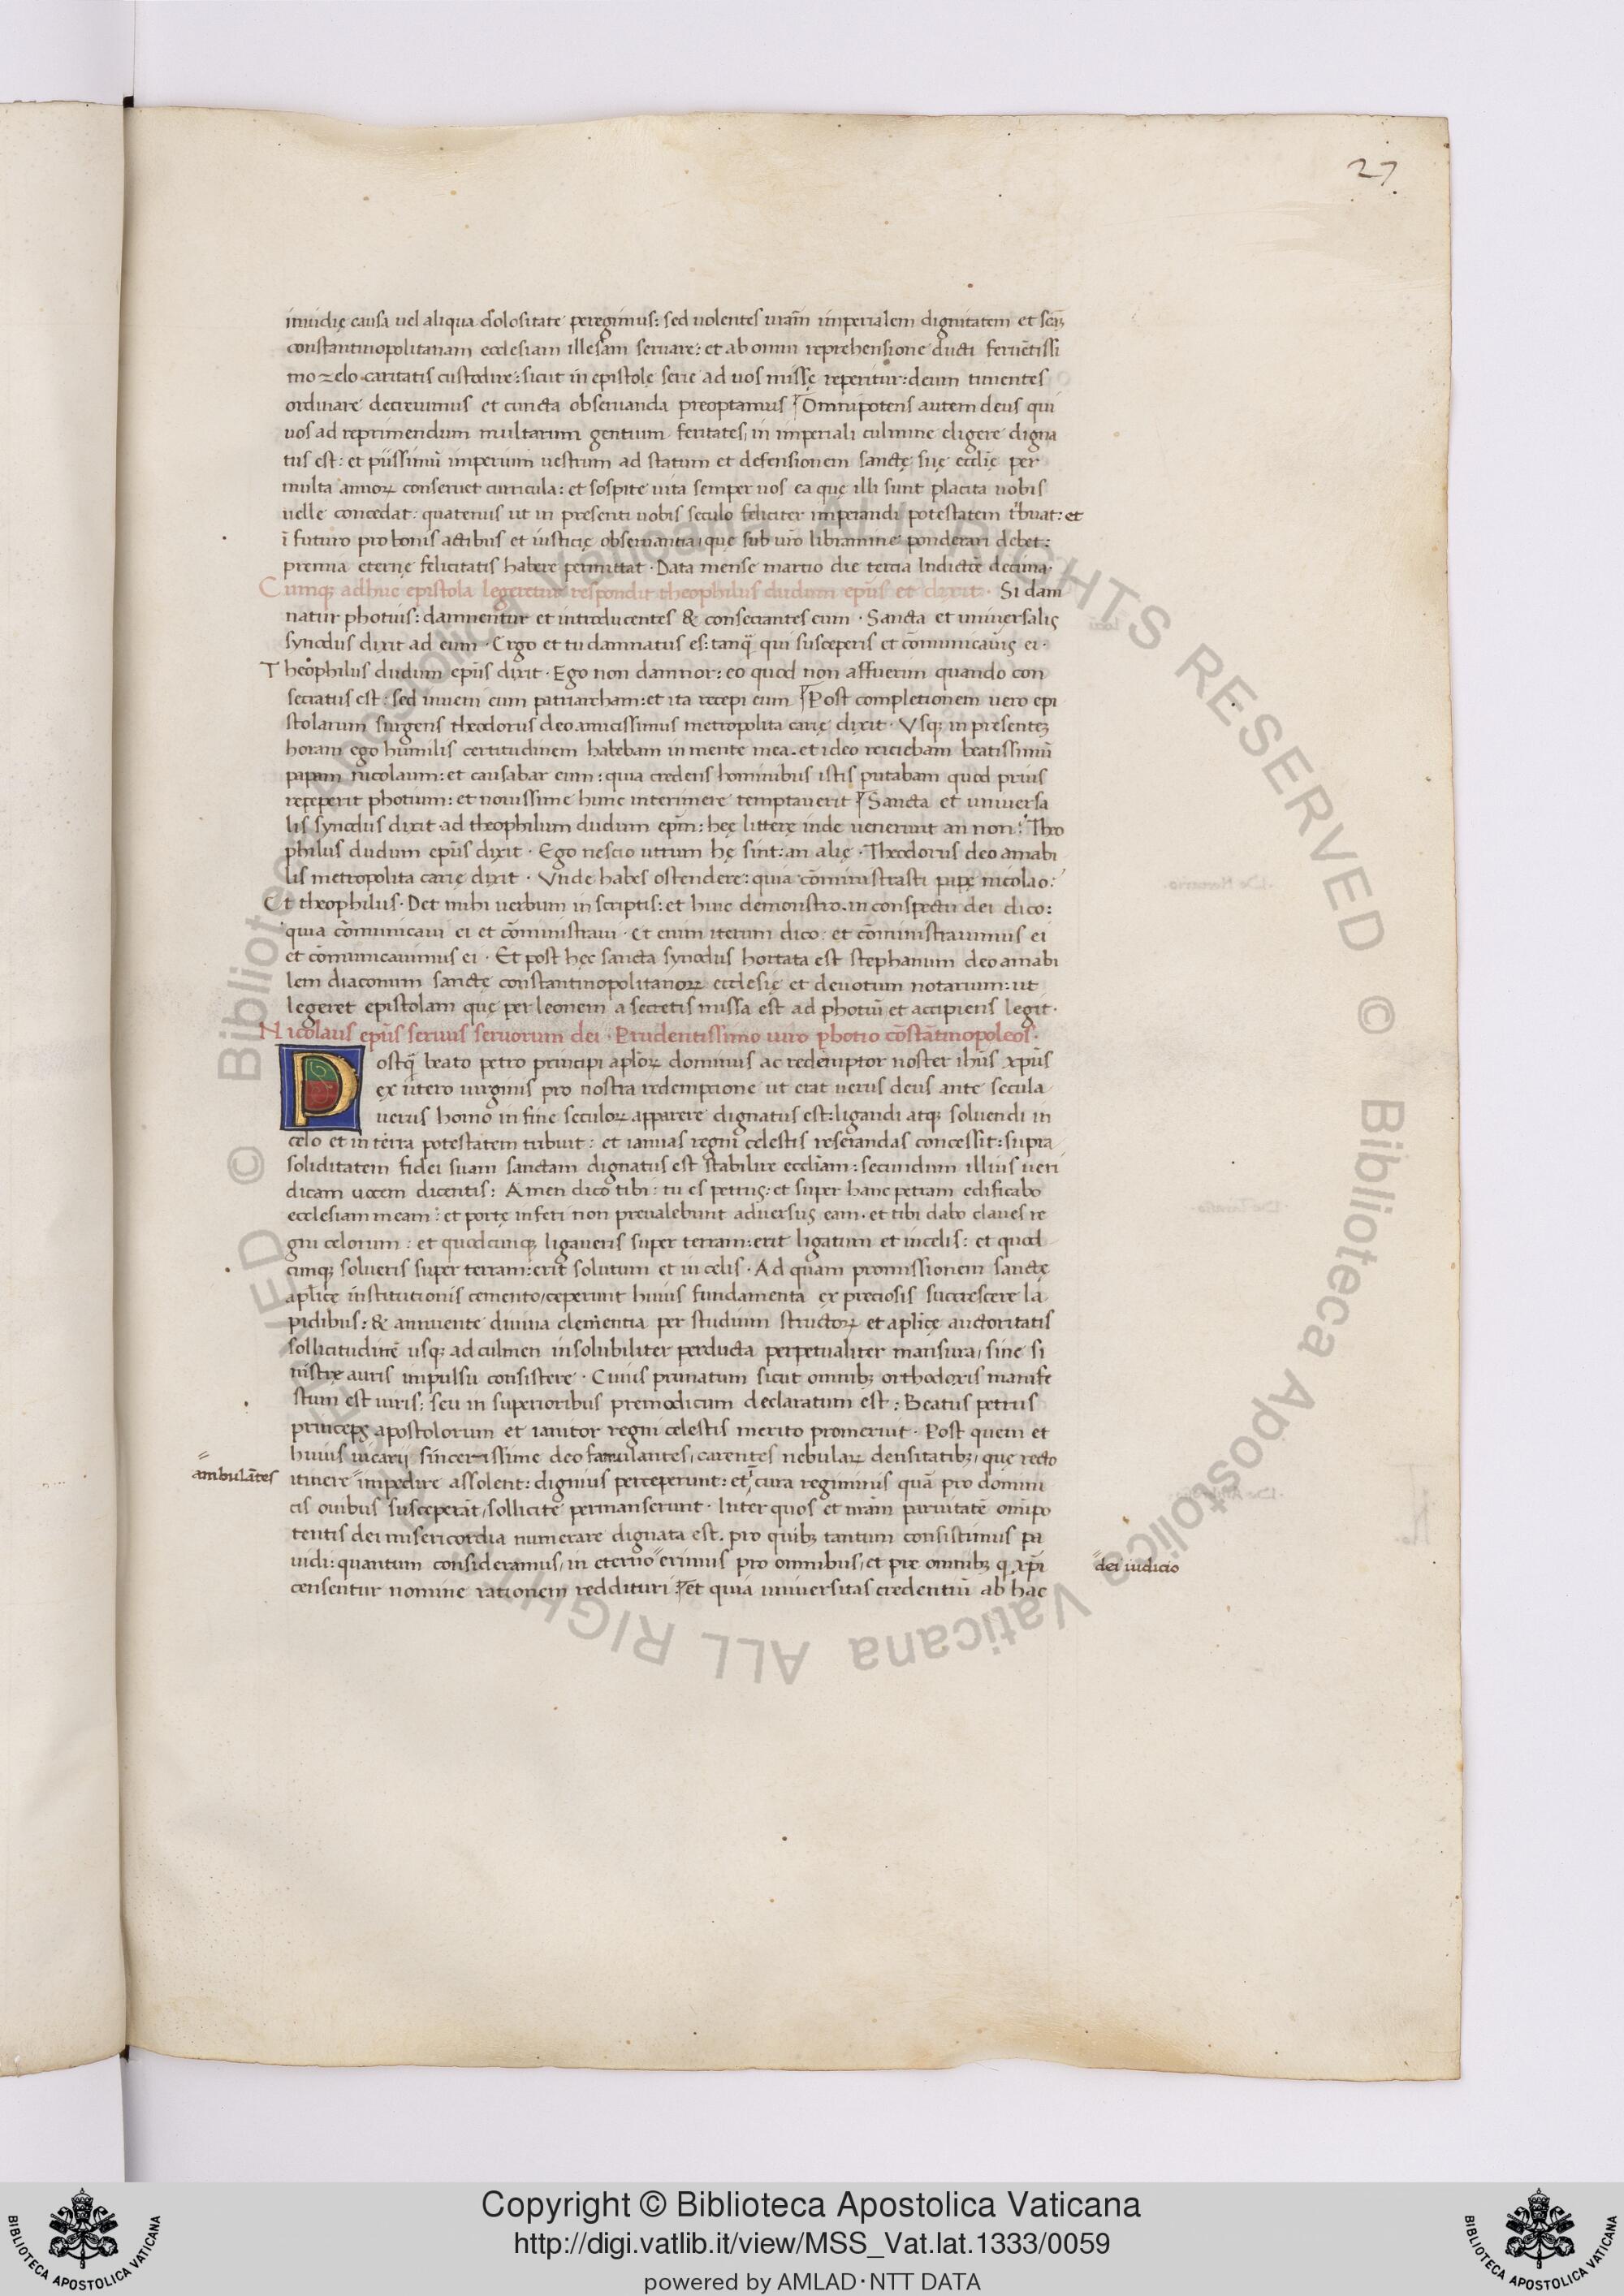 27
inuidię causa uel aliqua dolositate peregimus: sed uolentes uram̄ imperialem dignitatem et scāꝫ
constantinopolitanam ecclesiam illesam seruare: et ab omni reprehensione ducti feruētissi
mo zelo caritatis custodire: sicut in epistolę serie ad uos missę reperitur: deum timentes
ordinare decreuimus et cuncta obseruanda preoptamus Omnipotens autem deus qui
uos ad reprimendum multarum gentium feritates, in imperiali culmine eligere digna
tus est: et piissimū imperium uestrum ad statum et defensionem sanctę suę ecclię per
multa annoꝝ conseruet curricula: et sospite uita semper uos ea quę illi sunt placita uobis
uelle concedat: quatenus ut in presenti uobis seculo feliciter imperandi potestatem tͥbuat: et
ī futuro pro bonis actibus et iusticię obseruantia, quę sub uro libramine ponderari debet:
premia eternę felicitatis habere permittat · Data mense martio die tercia Indictōe decima·
Cumqꝫ adhuc epistola legeretur respondit theophilus dudum ep̄us et dixit · Si dam
natur photius: damnentur et introducentes & consecrantes eum · Sancta et uniuersalis
synodus dixit ad eum · Ergo et tu damnatus es: tanq̄ qui susceperis et cōmunicauis ei·
Theophilus dudum ep̄us dixit · Ego non damnor: eo quod non affuerim quando con
secratus est · sed inueni eum patriarcham: et ita recepi eum Post completionem uero epi
stolarum surgens theodorus deo amicissimus metropolita carię dixit · Vsqꝫ in presenteꝫ
horam ego humilis certitudinem habebam in mente mea. et ideo reiciebam beatissimū
papam nicolaum: et causabar eum: quia credens hominibus istis putabam quod prius
receperit photium: et nouissime hunc interimere temptauerit Sancta et uniuersa
lis synodus dixit ad theophilum dudum epm̄: hęc litterę inde uenerunt an non: Theo
philus dudum ep̄us dixit · Ego nescio utrum hę sint: an alię · Theodorus deo amabi
lis metropolita carię dixit · Vnde habes ostendere: quia cōministrasti papę nicolao:
Et theophilus · Det mihi uerbum in scriptis: et hinc demonstro. in conspectu dei dico:
quia cōmunicaui ei et cōministraui · Et enim iterum dico: et cōministrauimus ei
et cōmunicauimus ei · Et post hęc sancta synodus hortata est stephanum deo amabi
lem diaconum sanctę constantinopolitanoꝝ ecclesię et deuotum notarium: ut
legeret epistolam quę per leonem a secretis missa est ad photiū et accipiens legit·
Nicolaus ep̄us seruus seruorum dei · Prudentissimo uiro photio cōstātinopoleos·
Postq̄ beato petro principi aplo̅ꝝ dominus ac redemptor noster ihūs xp̄us
ex utero uirginis pro nostra redemptione ut erat uerus deus ante secula
uerus homo in fine seculoꝝ apparere dignatus est: ligandi atqꝫ soluendi in
celo et in terra potestatem tribuit: et ianuas regni celestis reserandas concessit: supra
soliditatem fidei suam sanctam dignatus est stabilire eccliam: secundum illius ueri
dicam uocem dicentis: Amen dico tibi: tu es petrus: et super hanc petram edificabo
ecclesiam meam: et portę inferi non preualebunt aduersus eam. et tibi dabo claues re
gni celorum: et quodcunqꝫ ligaueris super terram: erit ligatum et in celis: et quod
cunqꝫ solueris super terram: erit solutum et in celis · Ad quam promissionem sanctę
aplicę institutionis cemento, ceperunt huius fundamenta ex preciosis succrescere la
pidibus: & annuente diuina clementia per studium structoꝝ et aplicę auctoritatis
sollicitudinē usqꝫ ad culmen insolubiliter perducta perpetualiter mansura, sine si
nistrę auris impulsu consistere · Cuius primatum sicut omnibꝫ orthodoxis manife
stum est uiris: seu in superioribus premodicum declaratum est: Beatus petrus
princeps apostolorum et ianitor regni celestis merito promeruit · Post quem et
huius uicarij sincerissime deo famulantes, carentes nebulaꝝ densitatibꝫ, quę recto
ambulātes
itinere impedire assolent: dignius perceperunt: et ī cura regiminis quā pro domini
cis ouibus susceperāt, sollicite permanserunt · Inter quos et nram̄ paruitatē omīpo
tentis dei misericordia numerare dignata est. pro quibꝫ tantum consistimus pa
uidi: quantum consideramus, in eterno erimus pro omnibus, et prę omnibꝫ q xp̄i
dei iudicio
censentur nomine rationem reddituri et quia uniuersitas credentiū ab hac
© Biblioteca Apostolica Vaticana ALL RIGHTS RESERVED © Biblioteca Apostolica Vaticana ALL RIGHTS RESERVED
Copyright © Biblioteca Apostolica Vaticana
http://digi.vatlib.it/view/MSS_Vat.lat.1333/0059
powered by AMLAD·NTT DATA
BIBLIOTECA APOSTOLICA VATICANA
BIBLIOTECA APOSTOLICA VATICANA